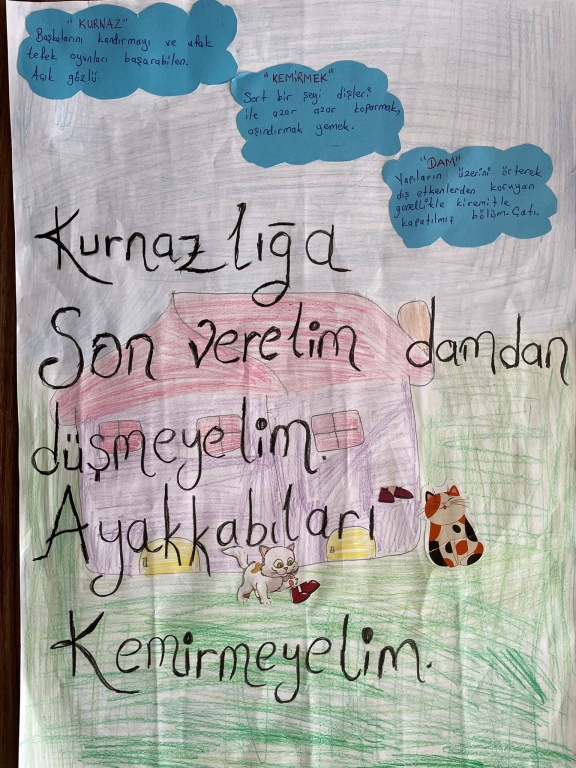 "KURNAZ"
Başkalarını kandırmayı ve ufak
tefek oyunları başarabilen.
Açık gözlü.
"KEMİRMEK"
Sert bir şeyi dişleri
ile azar azar koparmak,
aşındırmak yemek.
"DAM"
Yapıların üzerini örterek
dış etkenlerden koruyan
genellikle kiremitle
kapatılmış bölüm-Çatı.
Kurnazlığa
Son verelim damdan
düşmeyelim.
Ayakkabıları
Kemirmeyelim.